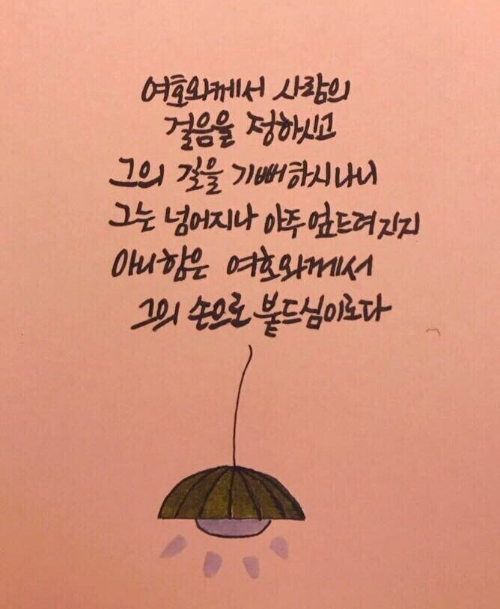 여호와께서 사람의
걸음을 정하시고
그의 길을 기뻐하시나니
그는 넘어지나 아주 엎드러지지
아니함은 여호와께서
그의 손으로 붙드심이로다